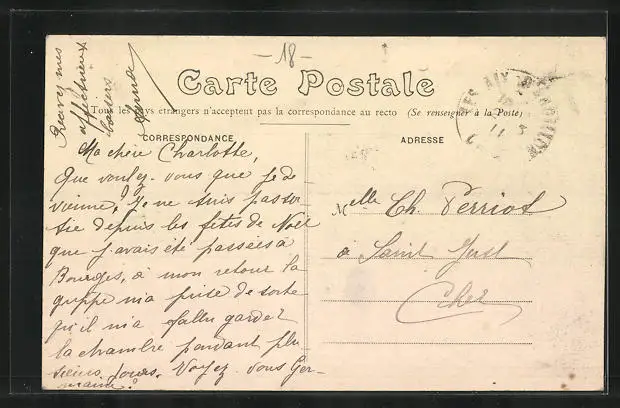 - 18 -
Carte Postale
Tous les pays étrangers n'acceptent pas la correspondance au recto (Se renseigner à la Poste)
CORRESPONDANCE
Ma chère Charlotte,
Que voulez-vous que je de
vienne? Je ne suis pas sor
tie depuis les fêtes de Noël
que j'avais été passées à
Bourges, à mon retour la
grippe m'a prise de sorte
qu'il m'a fallu garder
la chambre pendant plu
sieurs jours. Voyez-vous Ger-
maine?
Recevez mes
affectueux
baisers
ADRESSE
Melle Ch. Perriot
à Saint Just
Cher